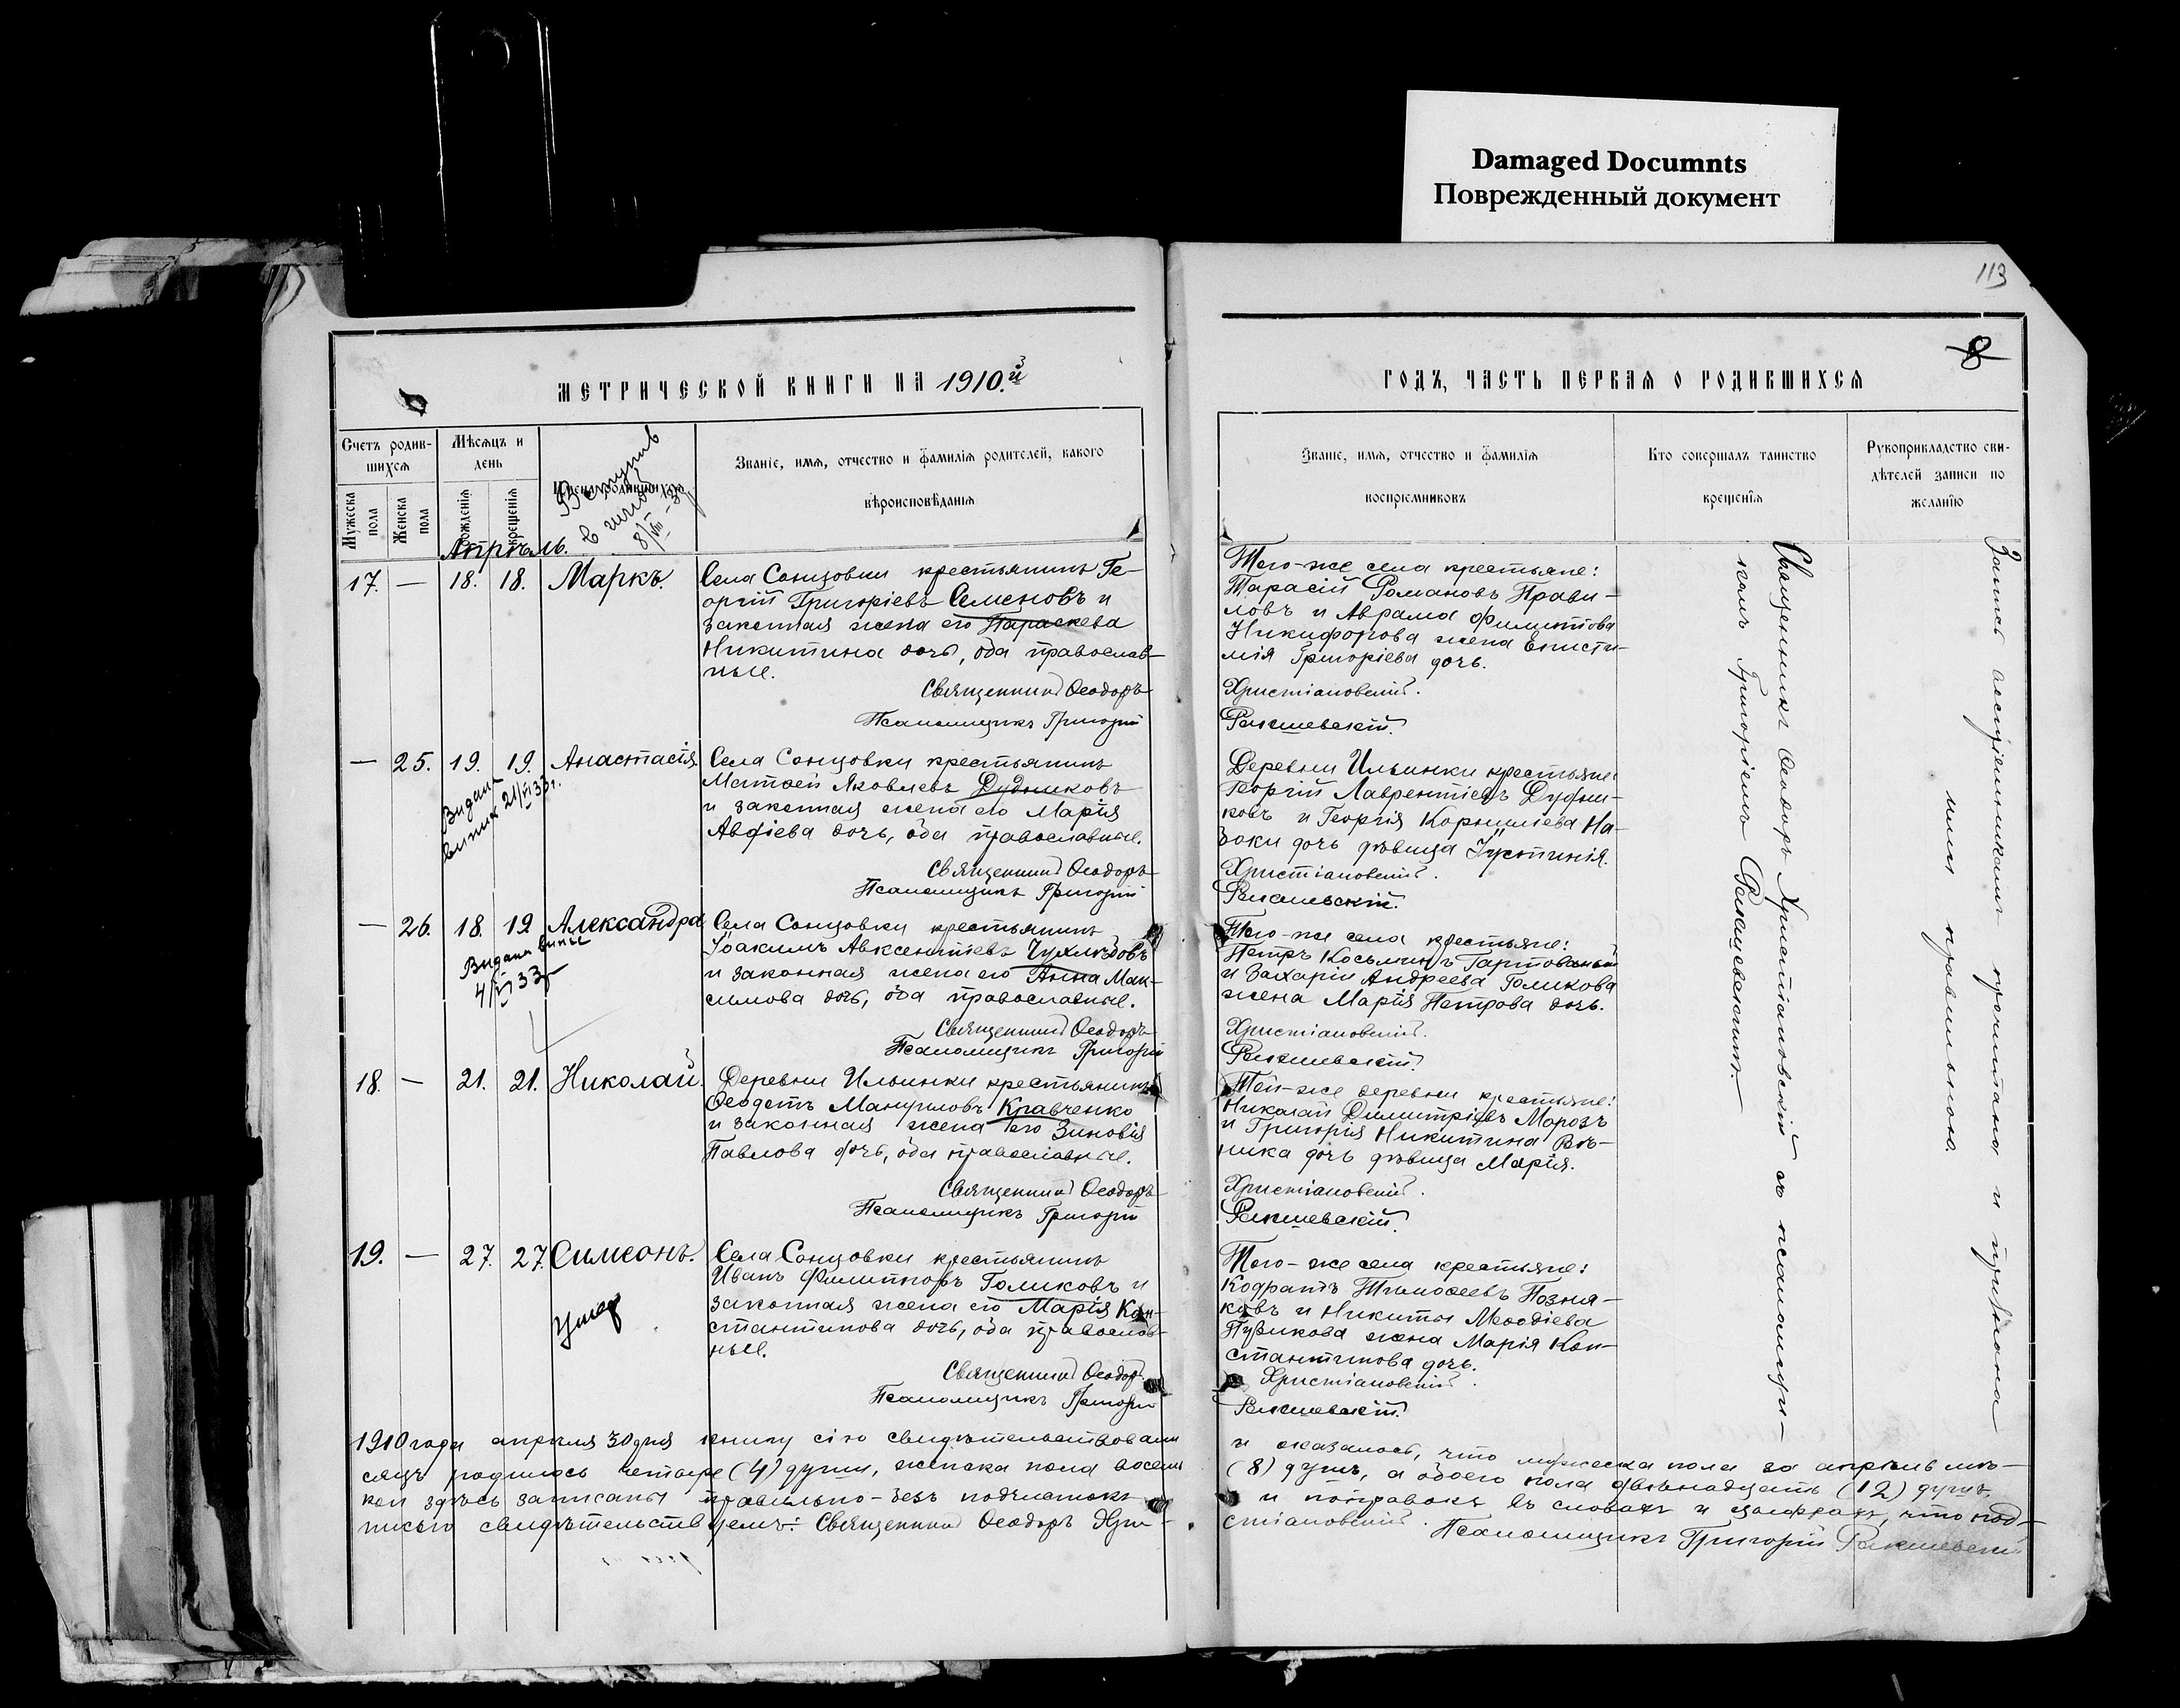 Damaged Documnts
Поврежденный документ
113
8
МЕТРИЧЕСКОЙ КНИГИ НА 1910.й
ГОДЪ, ЧАСТЬ ПЕРВАЯ О РОДИВШИХСЯ
Счетъ родив-
шихся
Мужеска пола
Женска пола
Мѣсяцъ и
день
рожденія
крещенія
Имена родившихся
Вступив
в шлюб
8/VIII
Званіе, имя, отчество и фамилія родителей, какого
вѣроисповѣданія
Званіе, имя, отчество и фамилія
воспріемниковъ
Кто совершалъ таинство
крещенія
Рукоприкладство сви-
дѣтелей записи по
желанію
Апрѣль.
17. — 18. 18. Маркъ.
Села Сонцовки крестьянинъ Ге-
оргій Григоріевъ Семеновъ и
законная жена его Параскева
Никитина дочь, оба православ-
ные.
Священникъ Ѳеодоръ
Псаломщикъ Григорій
Того-же села крестьяне:
Тарасій Романовъ Прави-
ловъ и Аврама Филиппова
Никифорова жена Еписти-
мія Григоріева дочь.
Христіановскій.
Ракшевскій.
— 25. 19. 19. Анастасія
Видана
випись 21/VI 33 г.
Села Сонцовки крестьянинъ
Матѳей Яковлевъ Дудниковъ
и законная жена его Марія
Авдіева дочь, оба православные.
Священникъ Ѳеодоръ
Псаломщикъ Григорій
Деревни Ильинки крестьяне:
Георгій Лаврентіевъ Дудни-
ковъ и Георгія Корниліева На-
зоки дочь дѣвица Іустинія.
Христіановскій.
Ракшевскій.
— 26. 18. 19. Александра
Видана випис
4/VI 33 г
Села Сонцовки крестьянинъ
Іоакимъ Авксентіевъ Чухлѣбовъ
и законная жена его Анна Мак-
симова дочь, оба православные.
Священникъ Ѳеодоръ
Псаломщикъ Григорій
Того-же села крестьяне:
Петръ Косьминъ Гартованый
и Захаріи Андреева Голикова
жена Марія Петрова дочь.
Христіановскій.
Ракшевскій.
18. — 21. 21. Николай.
Деревни Ильинки крестьянинъ
Ѳеодотъ Мануиловъ Кравченко
и законная жена его Зиновія
Павлова дочь, оба православные.
Священникъ Ѳеодоръ
Псаломщикъ Григорій
Той-же деревни крестьяне:
Николай Димитріевъ Морозъ
и Григорія Никитина Вѣ-
ника дочь дѣвица Марія.
Христіановскій.
Ракшевскій.
19. — 27. 27. Симеонъ.
Умер
Села Сонцовки крестьянинъ
Иванъ Филипповъ Голиковъ и
законная жена его Марія Кон-
стантинова дочь, оба православ-
ные.
Священникъ Ѳеодоръ
Псаломщикъ Григорій
Того-же села крестьяне:
Кодратъ Тимоѳеевъ Позня-
ковъ и Никиты Меѳодіева
Пузикова жена Марія Кон-
стантинова дочь.
Христіановскій.
Ракшевскій.
Священникъ Ѳеодоръ Христіановскій съ псаломщи-
комъ Григоріемъ Ракшевскимъ.
Запись воспріемникамъ прочитана и признана
ими правильною.
1910 года апрѣля 30 дня книгу сію свидѣтельствовали и оказалось, что мужеска пола за апрѣль мѣ-
сяцъ родилось четыре (4) души, женска пола восемь (8) душъ, а обоего пола двѣнадцать (12) душъ,
кои здѣсь записаны правильно-безъ подчистокъ и поправокъ въ словахъ и цыфрахъ, что под-
писью свидѣтельствуемъ: Священникъ Ѳеодоръ Хри-стіановскій. Псаломщикъ Григорій Ракшевскій